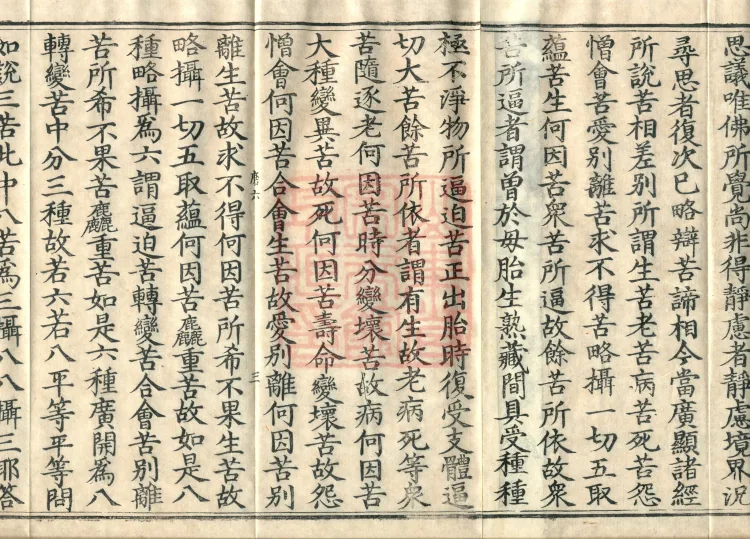 思議唯佛所覺尚非得靜慮者靜慮境界況
尋思者復次已略辯苦諦相今當廣顯諸經
所說苦相差別所謂生苦老苦病苦死苦怨
憎會苦愛別離苦求不得苦略攝一切五取
蘊苦生何因苦衆苦所逼故餘苦所依故衆
苦所逼者謂曾於母胎生熟藏間具受種種
極不淨物所逼迫苦正出胎時復受支體逼
切大苦餘苦所依者謂有生故老病死等衆
苦隨逐老何因苦時分變壞苦故病何因苦
大種變異苦故死何因苦壽命變壞苦故怨
憎會何因苦合會生苦故愛別離何因苦別
磨六 三
離生苦故求不得何因苦所希不果生苦故
略攝一切五取蘊何因苦麤重苦故如是八
種略攝為六謂逼迫苦轉變苦合會苦別離
苦所希不果苦麤重苦如是六種廣開為八
轉變苦中分三種故若六若八平等平等問
如說三苦此中八苦爲三攝八八攝三耶答